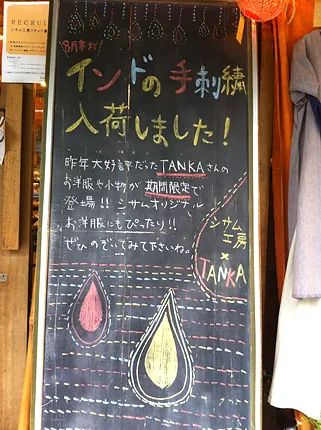 RECRUIT
シサム工房スタッフ募集
8月末まで
インドの手刺繍
入荷しました!
昨年大好評だったTANKAさんの
お洋服や小物が期間限定で
登場!! シサムオリジナル
お洋服にもぴったり!!
ぜひのぞいてみて下さいね。
シサム
工房
×
TANKA